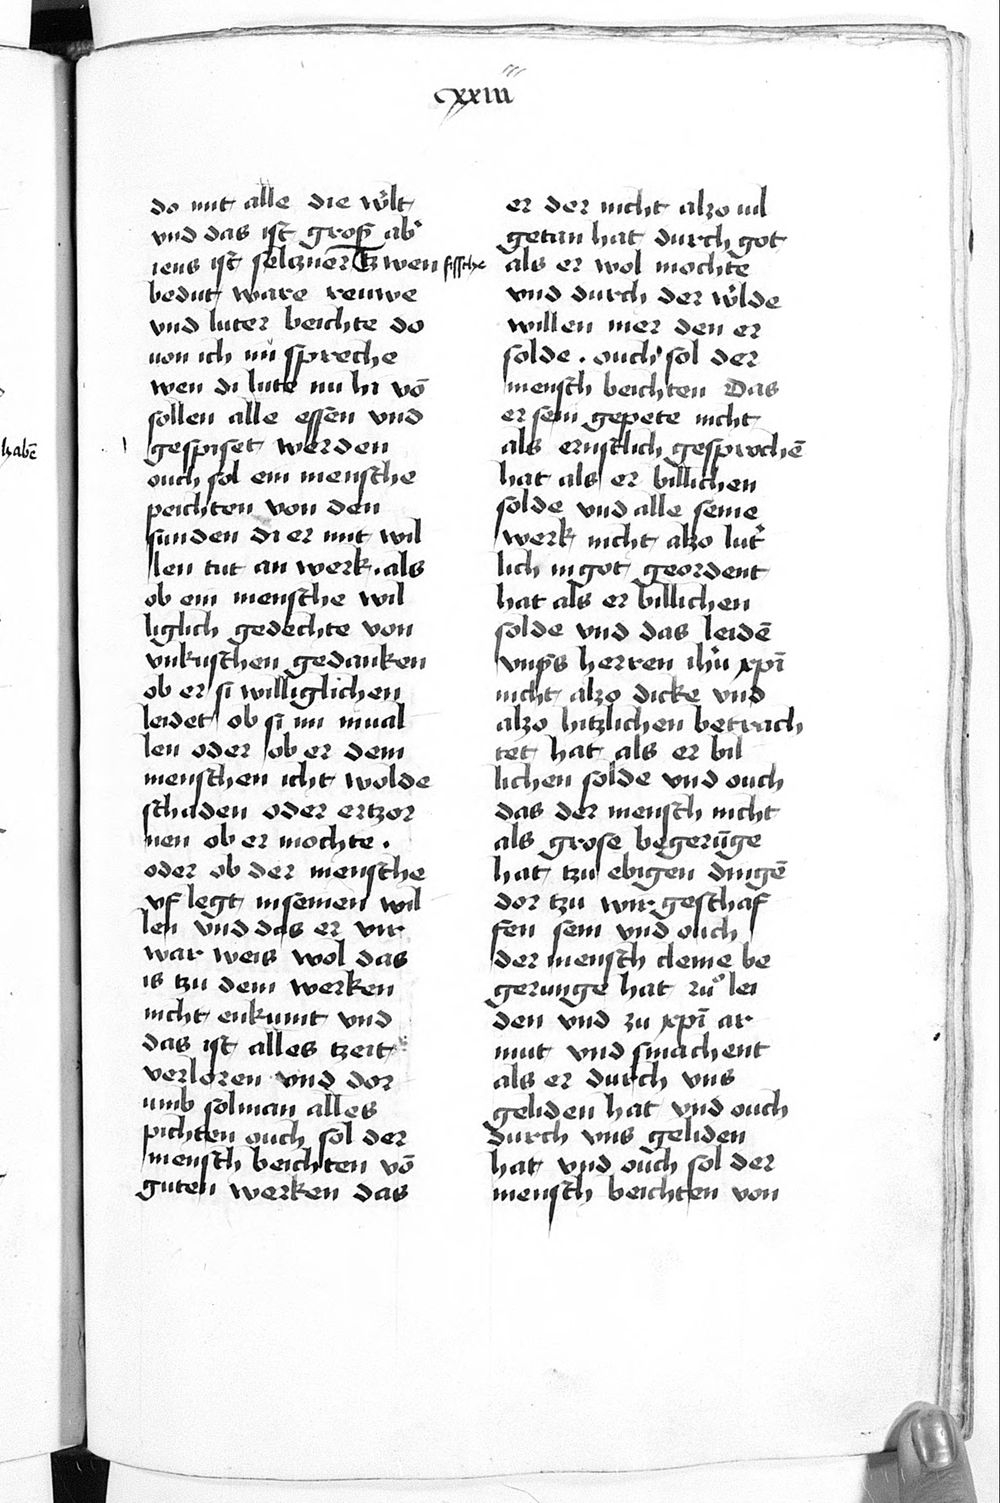 cxxiii
do mit alle die wˀlt
vnd das ist gros abˀ
iens ist selczner Tzwen fissche
bedut ware reuwe
vnd luter beichte do
uon ich nu spreche
wen di lute nu hi vō
sollen alle essen vnd
gespiset werden
ouch sol ein mensche
peichten von den
sunden di er mit wil
len tut an werk. als
ob ein mensche wil
liglich gedechte von
vnkuschen gedanken
ob er si williglichen
leidet ob si im inual
len oder ob er dem
menschen icht wolde
schaden oder ertzor
nen ob er mochte.
oder ob der mensche
vf legt in seinen wil
len vnd das er vir
war weis wol das
is tzu dem werken
nicht enkumt vnd
das ist alles tzeit
verloren vnd dor
umb sol man alles
pichten ouch sol der
mensch beichten vō
guten werken das
er der nicht alzo uil
getan hat durch got
als er wol mochte
vnd durch der wˀlde
willen mer den er
solde. ouch sol der
mensch beichten Das
er sein gepete nicht
als ernstlich gesprochē
hat als er billichen
solde vnd alle seine
werk nicht alzo lutˀ
lich in got geordent
hat als er billichen
solde vnd das leidē
vnsˀs herren ihū xpī
nicht alzo dicke vnd
alzo hitzlichen betrach
tet hat als er bil
lichen solde vnd ouch
das der mensch nicht
als grose begerūge
hat tzu ebigen dingē
dor tzu wir geschaf
fen sein vnd ouch
der mensch cleine be
gerunge hat zuͦ lei
den vnd zu xpī ar
mut vnd smachent
als er durch vns
geliden hat vnd ouch
durch vns geliden
hat vnd ouch sol der
mensch beichten von
habē